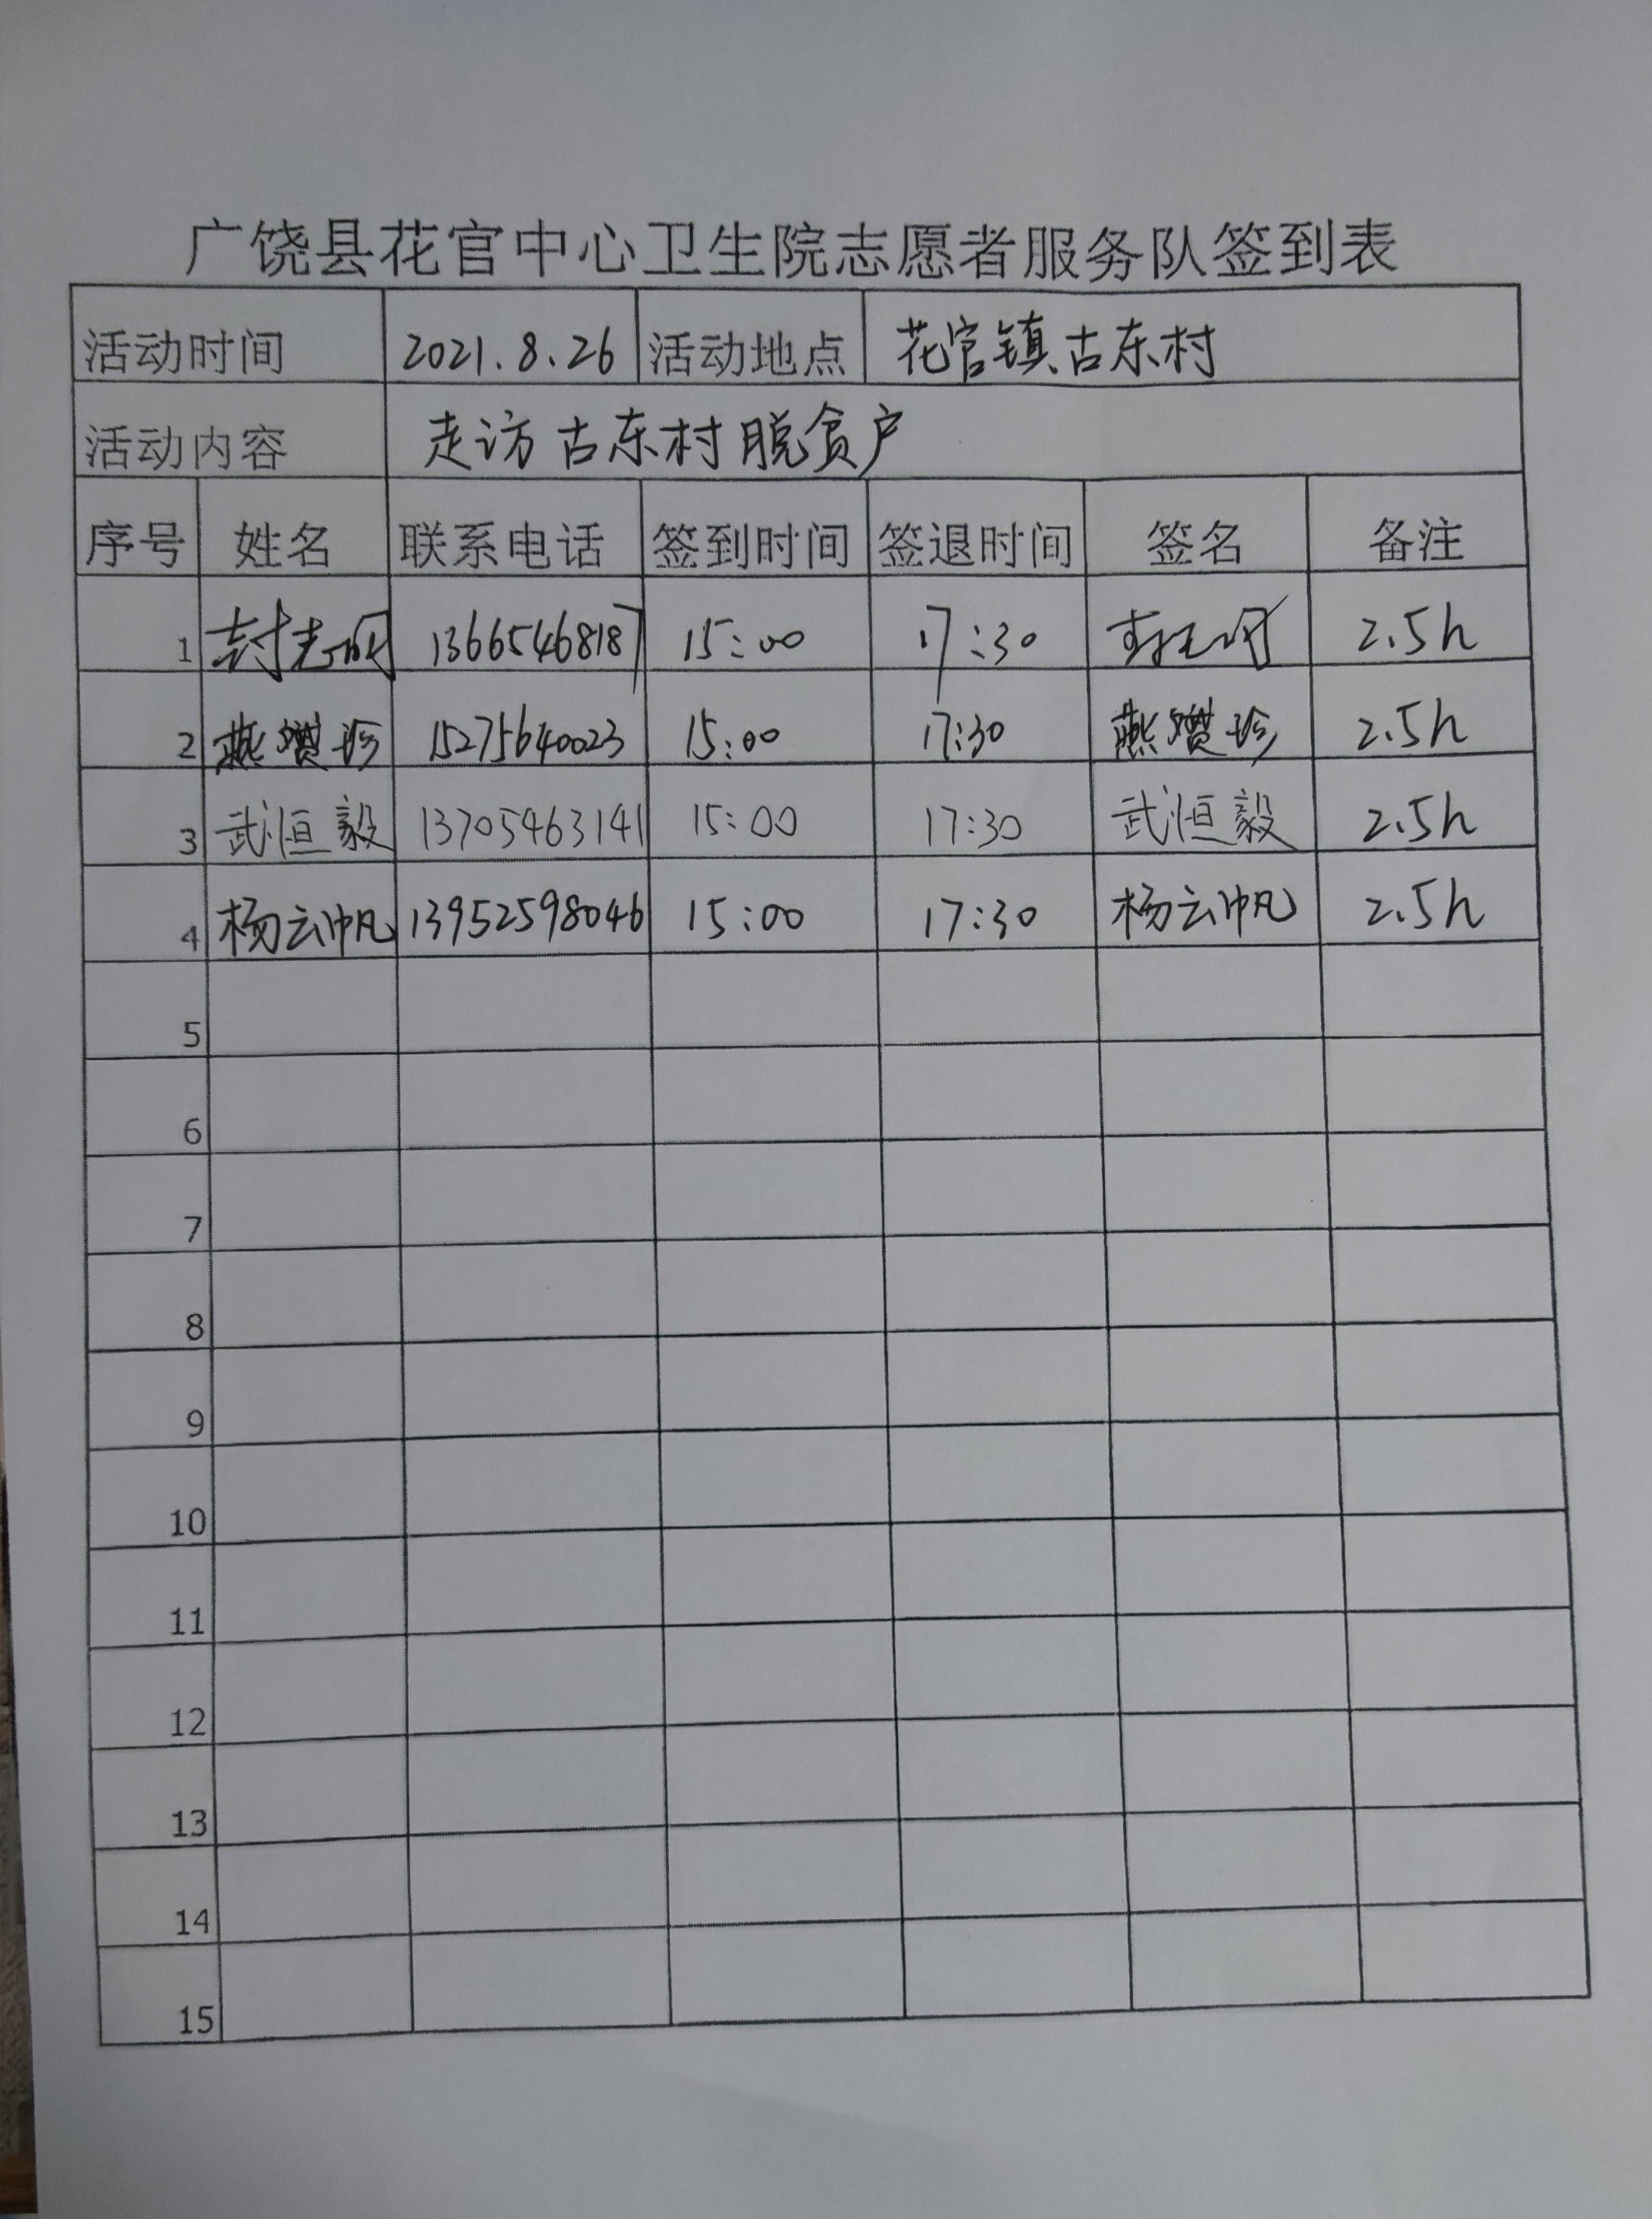 广饶县花官中心卫生院志愿者服务队签到表
活动时间 2021.8.26 活动地点 花官镇古东村
活动内容 走访古东村脱贫户
序号 姓名 联系电话 签到时间 签退时间 签名 备注
1 封志明 13665468187 15:00 17:30 2.5h
2 燕 珍 15275640023 15:00 17:30 燕 珍 2.5h
3 武恒毅 13705463141 15:00 17:30 武恒毅 2.5h
4 杨云帆 13952598046 15:00 17:30 杨云帆 2.5h
5
6
7
8
9
10
11
12
13
14
15